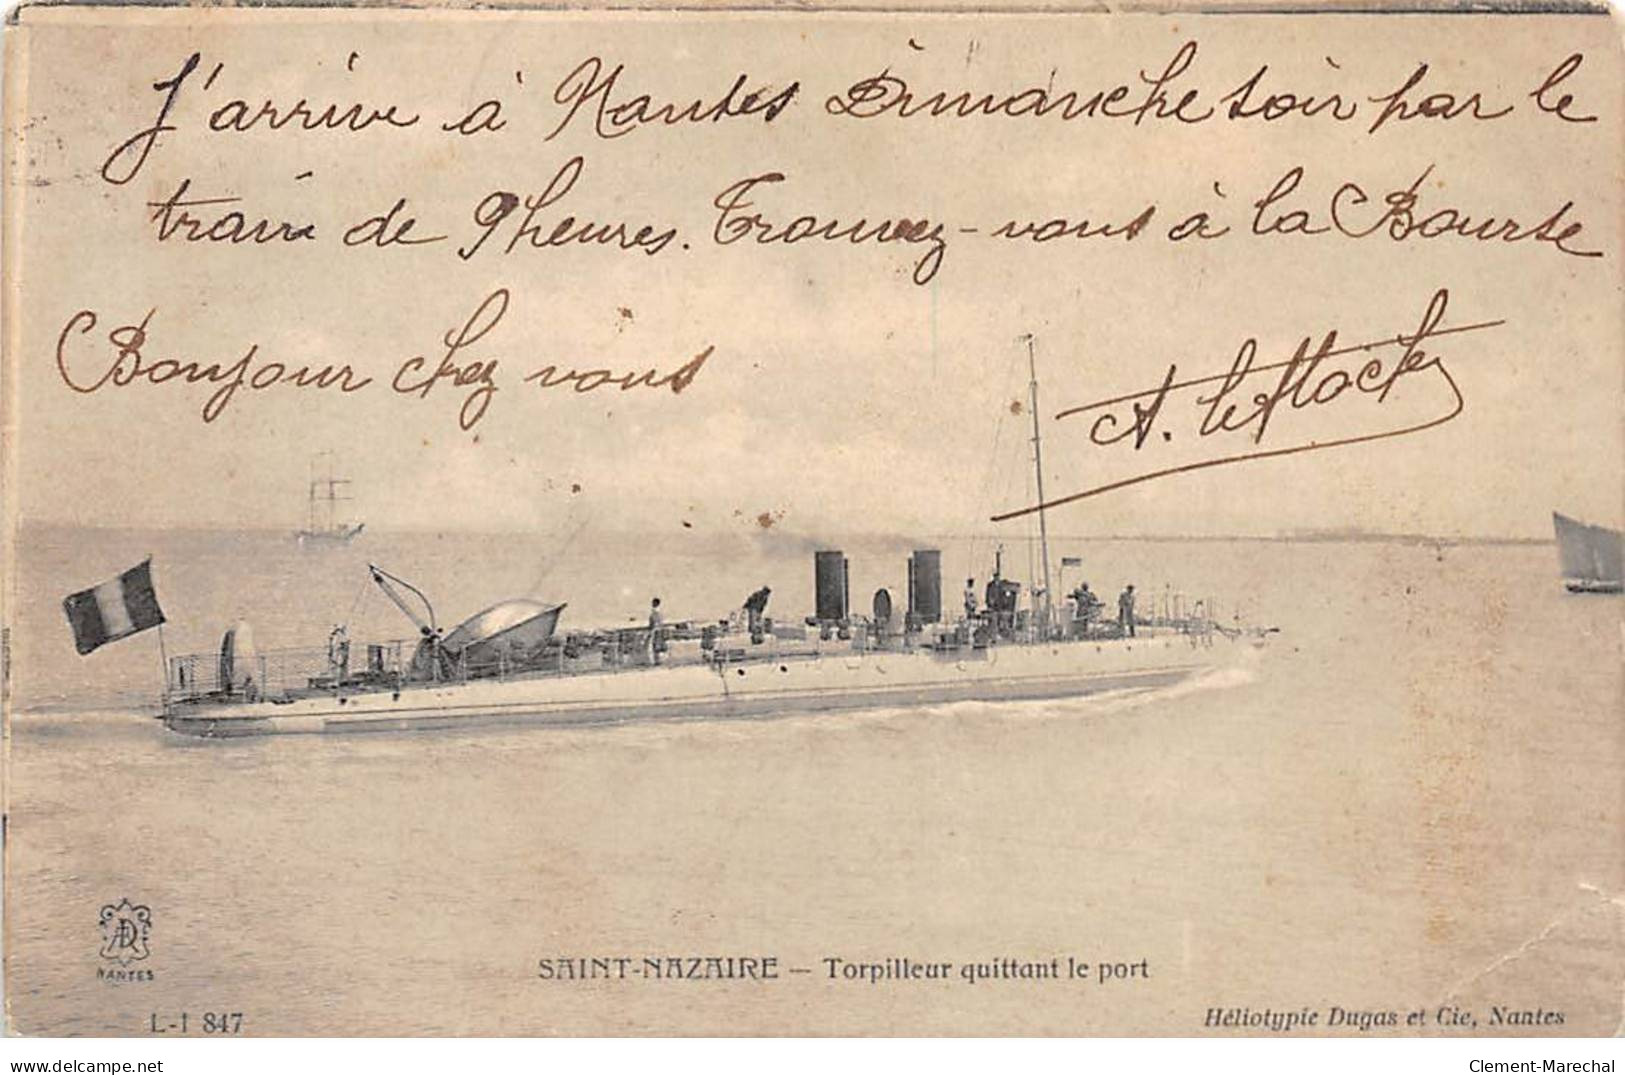 J'arrive à Nantes Dimanche soir par le
train de 9 heures. Trouvez-vous à la Bourse
Bonjour chez vous
A.
NANTES
SAINT-NAZAIRE — Torpilleur quittant le port
L-I 847
Héliotypie Dugas et Cie, Nantes
delcampe.net
Clement-Marechal